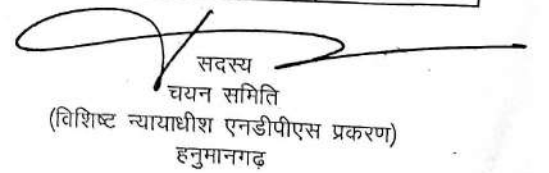 सदस्य
चयन समिति
(विशिष्ट न्यायाधीश एनडीपीएस प्रकरण)
हनुमानगढ़